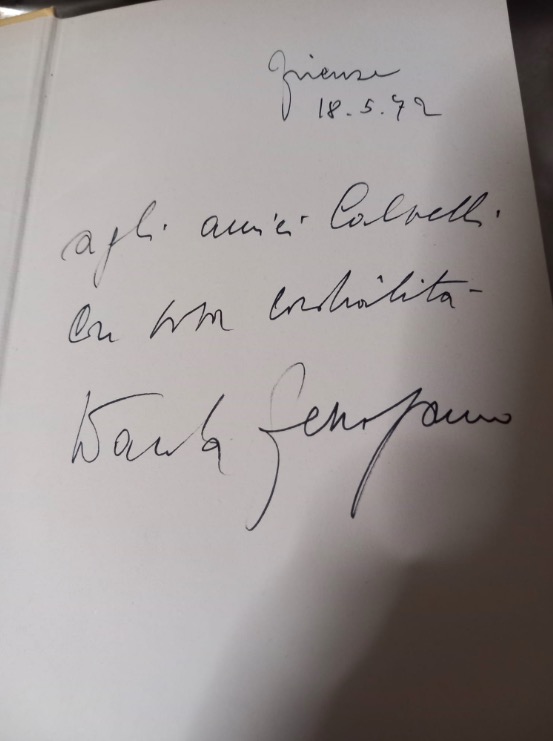 Firenze
18.5.72
agli amici Calvelli
con viva cordialità
Wanda